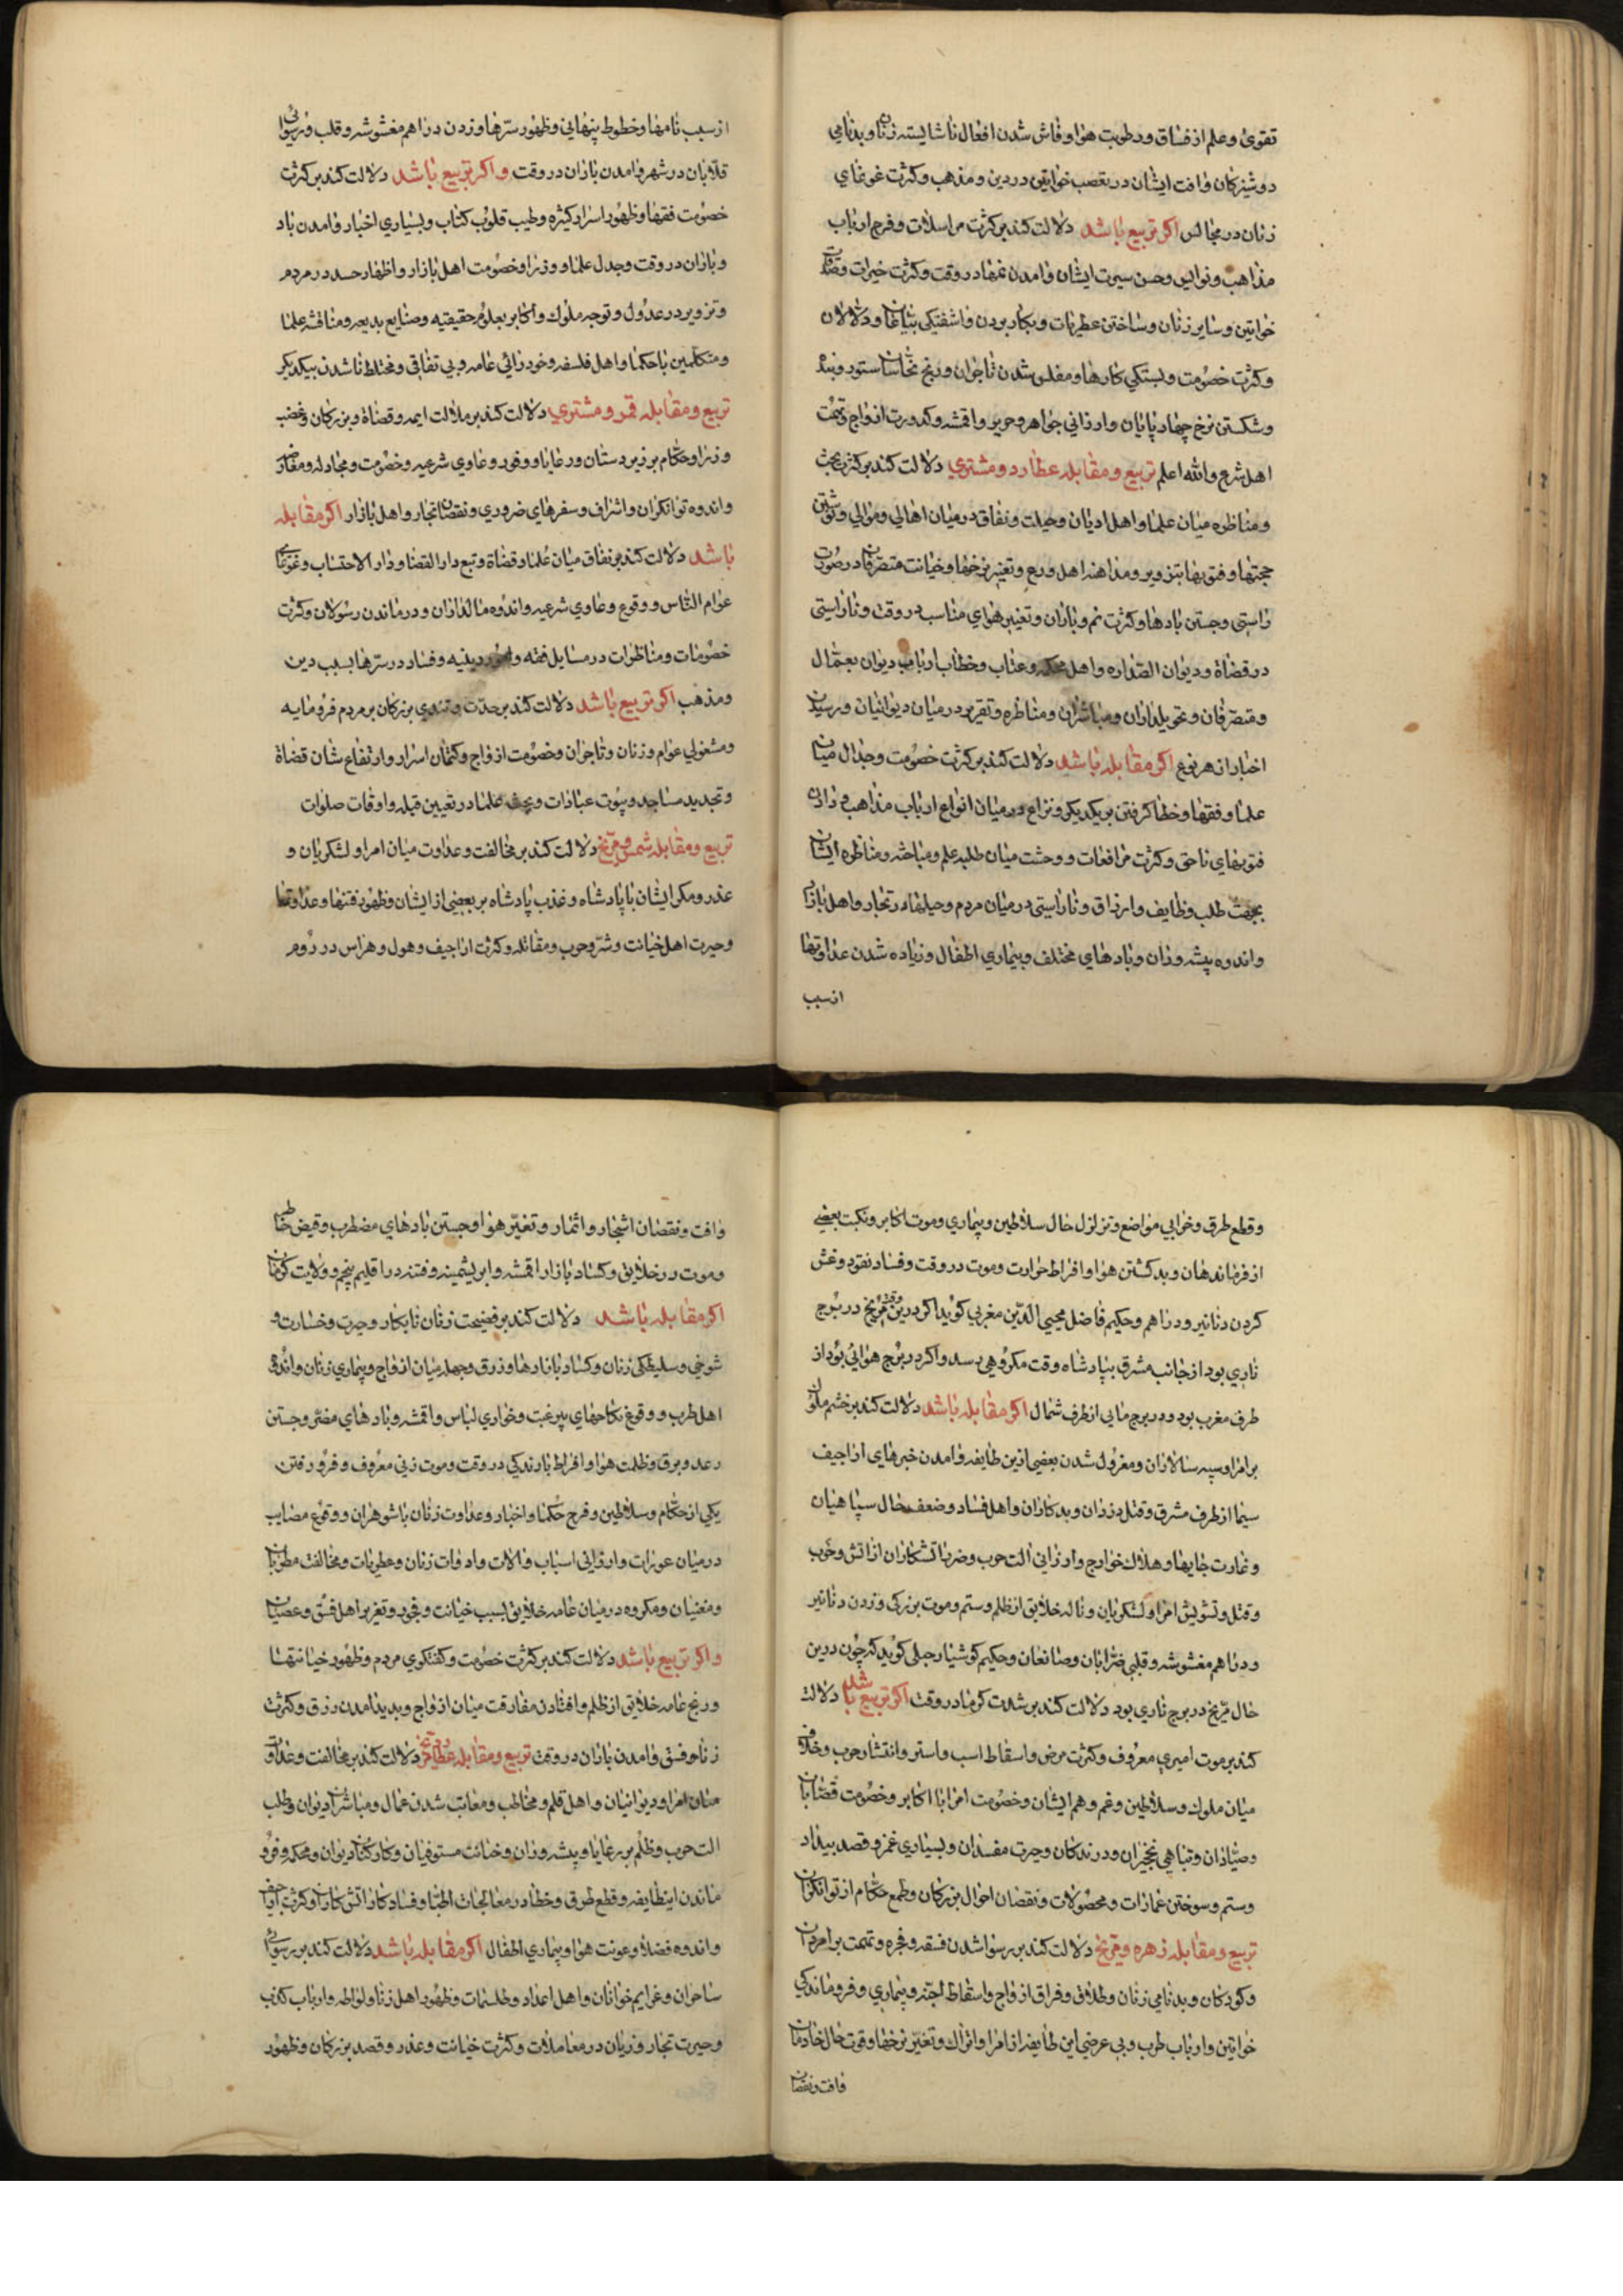 تقوی وعلم از فساق ورطوبت هوا وفاش شدن افعال ناشایسته زنان وبدنامی
دوشیزکان وافت ایشان در تعصب خواتین در دین ومذهب وکثرت غوغای
زنان در مجالس اکر تربیع باشد دلالت کند بر کثرت مراسلات وفرح ارباب
مذاهب ونوامیس وحسن سیرت ایشان وامدن نمها در وقت وکثرت خیرات
خواتین وسایر زنان وساختن عطریات وبکار بردن واشفتکی بیاعان ودلالان
وکثرت خصومت وبستکی کارها ومفلس شدن تاجران ورنج نخاسان ستور وبنده
وشکستن نرخ چهارپایان وارزانی جواهر وحریر واقمشه وکدورت ازواج وتهمت
اهل شرع والله اعلم تربیع ومقابله عطارد ومشتری دلالت کند بر کثرت بحث
ومناظره میان علما واهل ادیان وحیلت ونفاق در میان اهالی وموالی ونوشتن
حجتها وفتویها بتزویر ومداهنه اهل ورع وتغییر نرخها وخیانت متصرفان در صورت
راستی وجستن بادها وکثرت نم وباران وتغییر هوای مناسب در وقت وناراستی
در قضاة ودیوان الصداره واهل محکمه وعتاب وخطاب ارباب دیوان بعمال
ومتصرفان وتحویلداران ومباشران ومناظره وتقریر در میان دیوانیان ورسیدن
اخبار از هر نوع اکر مقابله باشد دلالت کند بر کثرت خصومت وجدال میان
علما وفقها وخطا کرفتن بر یکدیکر ونزاع در میان انواع ارباب مذاهب ودادن
فتویهای ناحق وکثرت مرافعات ووحشت میان طلبه علم ومباحثه ومناظره ایشان
بجهت طلب وظایف وارزاق وناراستی در میان مردم وحیلها در تجار واهل بازار
واندوه پیشه وران وبادهای مختلف وبیماری اطفال وزیاده شدن عداوتها
از سبب
از سبب نامها وخطوط پنهانی وظهور سرها وزدن دراهم مغشوشه وقلب ورسوائی
قلابان در شهر وامدن باران در وقت واکر تربیع باشد دلالت کند بر کثرت
خصومت فقها وظهور اسرار کثیره وطیب قلوب کتاب وبسیاری اخبار وامدن باد
وباران در وقت وجدل علما ووزرا وخصومت اهل بازار واظهار حسد در مردم
وتزویر در عدول وتوجه ملوک واکابر بعلوم حقیقیه وصنایع بدیعه ومناقشه علما
ومتکلمین با حکما واهل فلسفه وخودرائی عامه وبی تفاقی ومختلط ناشدن بیکدیکر
تربیع ومقابله قمر ومشتری دلالت کند بر ملالت ایمه وقضاة وبزرکان وغضب
وزرا وحکام بر زیردستان ورعایا ووفور دعاوی شرعیه وخصومت ومجادله
واندوه توانکران واشراف وسفرهای ضروری ونقصان تجار واهل بازار اکر مقابله
باشد دلالت کند بر نفاق میان علما وقضاة وتبع دار القضا ودار الاحتساب وغوغای
عوام الناس ووقوع دعاوی شرعیه واندوه مالداران ودرماندن رسولان وکثرت
خصومات ومناظرات در مسایل فقه وامور دینیه وفساد در سترها بسبب دین
ومذهب اکر تربیع باشد دلالت کند بر حدت وتندی بزرکان بر مردم فرومایه
ومشغولی عوام وزنان وتاجران وخصومت ازواج وکتمان اسرار وارتفاع شان قضاة
وتجدید مساجد وبیوت عبادات وبحث علما در تعیین قبله واوقات صلوات
تربیع ومقابله شمس ومریخ دلالت کند بر مخالفت وعداوت میان امرا ولشکریان و
غدر ومکر ایشان با پادشاه وغذب پادشاه بر بعضی از ایشان وظهور فتنها وعداوتها
وحیرت اهل خیانت وشر وحرب ومقاتله وکثرت اراجیف وهول وهراس در روم
وقطع طرق وخرابی مواضع وتزلزل حال سلاطین وبیماری وموت اکابر ونکبت بعضی
از فرماندهان وبد کشتن هوا وافراط حرارت وموت در وقت وفساد نقود وغش
کردن دنانیر ودراهم وحکیم فاضل محیی الدین مغربی کوید اکر درین وقت مریخ در برج
ناری بود از جانب مشرق بپادشاه وقت مکروهی رسد واکر در برج هوائی بود از
طرف مغرب بود ودر برج مایی از طرف شمال اکر مقابله باشد دلالت کند بر خشم ملوک
بر امرا وسپه سالاران ومعزول شدن بعضی ازین طایفه وامدن خبرهای اراجیف
سیما از طرف مشرق وقتل دزدان وبدکاران واهل فساد وضعف حال سپاهیان
وغارت جایها وهلاک خوارج وارزانی الت حرب وضرر اتشکاران از اتش وحرب
وقتل وتشویش امرا ولشکریان وناله خلایق از ظلم وستم وموت بزرکی وزدن دنانیر
ودراهم مغشوشه وقلبی ضرابان وصانعان وحکیم کوشیار جیلی کوید که چون درین
حال مریخ در برج ناری بود دلالت کند بر شدت کرما در وقت اکر تربیع باشد دلالت
کند بر موت امیری معروف وکثرت مرض واسقاط اسب واستر وانتشار حرب وخلاف
میان ملوک وسلاطین وغم وهم ایشان وخصومت امرا با اکابر وخصومت قصابان
وصیادان وتباهی نخجیران ودرندکان وحیرت مفسدان وبسیاری غمز وقصد بیداد
وستم وسوختن عمارات ومحصولات ونقصان احوال بزرکان وطمع حکام از توانکران
تربیع ومقابله زهره ومریخ دلالت کند بر رسوا شدن فسقه وفجره وتهمت بر امردان
وکودکان وبدنامی زنان وطلاق وفراق ازواج واسقاط اجنه وبیماری وفروماندکی
خواتین وارباب طرب وبی عرضی این طایفه از امرا واتراک وتغیر نرخها وقوت حال خادمان
وافت ونقصان
وافت ونقصان اشجار واثمار وتغیر هوا وجستن بادهای مضطرب
وموت در خلایق وکساد بازار اقمشه وابریشمینه وفتنه در اقلیم پنجم وولایت کرمان
اکر مقابله باشد دلالت کند بر فضیحت زنان نابکار وحیرت وخسارت و
شوخی وسلیطکی زنان وکساد بازارها وزرق وجهل میان ازواج وبیماری زنان واندوه
اهل طرب ووقوع نکاحهای بیرغبت وخواری لباس واقمشه وبادهای مضر وجستن
رعد وبرق وظلمت هوا وافراط بارندکی در وقت وموت زنی معروف وفرو رفتن
یکی از حکام وسلاطین وفرح حکما واخبار وعداوت زنان با شوهران ووقوع مصایب
در میان عورات وارزانی اسباب والات وادوات زنان وعطریات ومخالفت مطربان
ومغنیان ومکروه در میان عامه خلایق بسبب خیانت وفجور وتعزیر اهل فسق وعصیان
واکر تربیع باشد دلالت کند بر کثرت خصومت وکفتکوی مردم وظهور خیانتها
ورنج عامه خلایق از ظلم وافتادن مفارقت میان ازواج وپدید امدن رزق وکثرت
زنا وفسق وامدن باران در وقت تربیع ومقابله عطارد ومریخ دلالت کند بر مخالفت وعداوت
میان امرا ودیوانیان واهل قلم ومخاطب ومعاتب شدن عمال ومباشران دیوان وطلب
الت حرب وظلم بر رعایا وپیشه وران وخیانت مستوفیان وکارکنان دیوان ومحکمه وفرو
ماندن اینطایفه وقطع طرق وخطا در معالجات اطبا وفساد کار اتش کاران وکثرت اراجیف
واندوه فضلا وعونت هوا وبیماری اطفال اکر مقابله باشد دلالت کند بر رسوائی
ساحران وعزایم خوانان واهل اعداد وطلسمات وظهور اهل زنا ولواطه وارباب کذب
وحیرت تجار وزیان در معاملات وکثرت خیانت وغدر وقصد بزرکان وظهور